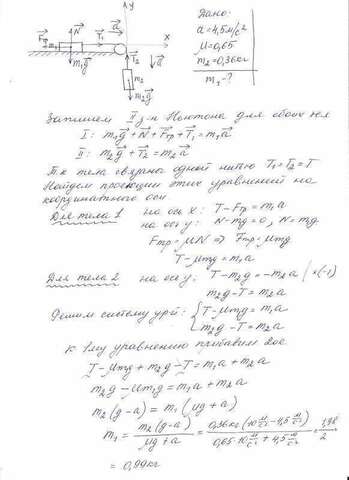 y
N
a
Fтр
T₁
x
m₁
m₁g
T₂
a
m₂
m₂g
Дано:
a=4,5м/с²
μ=0,65
m₂=0,36кг
m₁-?
Запишем IIз-н Ньютона для обоих тел
I: m₁g+N+Fтр+T₁=m₁a
II: m₂g+T₂=m₂a
Т.к тела связаны одной нитью T₁=T₂=T
Найдем проекции этих уравнений на
координатные оси
Для тела 1 на ось x: T-Fтр=m₁a
на ось y: N-m₁g=0, N=m₁g
Fтр=μN ⇒ Fтр=μm₁g
T-μm₁g=m₁a
Для тела 2 на ось y: T-m₂g=-m₂a /×(-1)
m₂g-T=m₂a
Решим систему ур-й: {T-μm₁g=m₁a
m₂g-T=m₂a
К 1му уравнению прибавим 2ое
T-μm₁g+m₂g-T=m₁a+m₂a
m₂g-μm₁g=m₁a+m₂a
m₂(g-a)=m₁(μg+a)
m₁=m₂(g-a)/μg+a=0,36кг(10м/с²-4,5м/с²)/0,65·10м/с²+4,5м/с²=1,98/2
=0,99кг